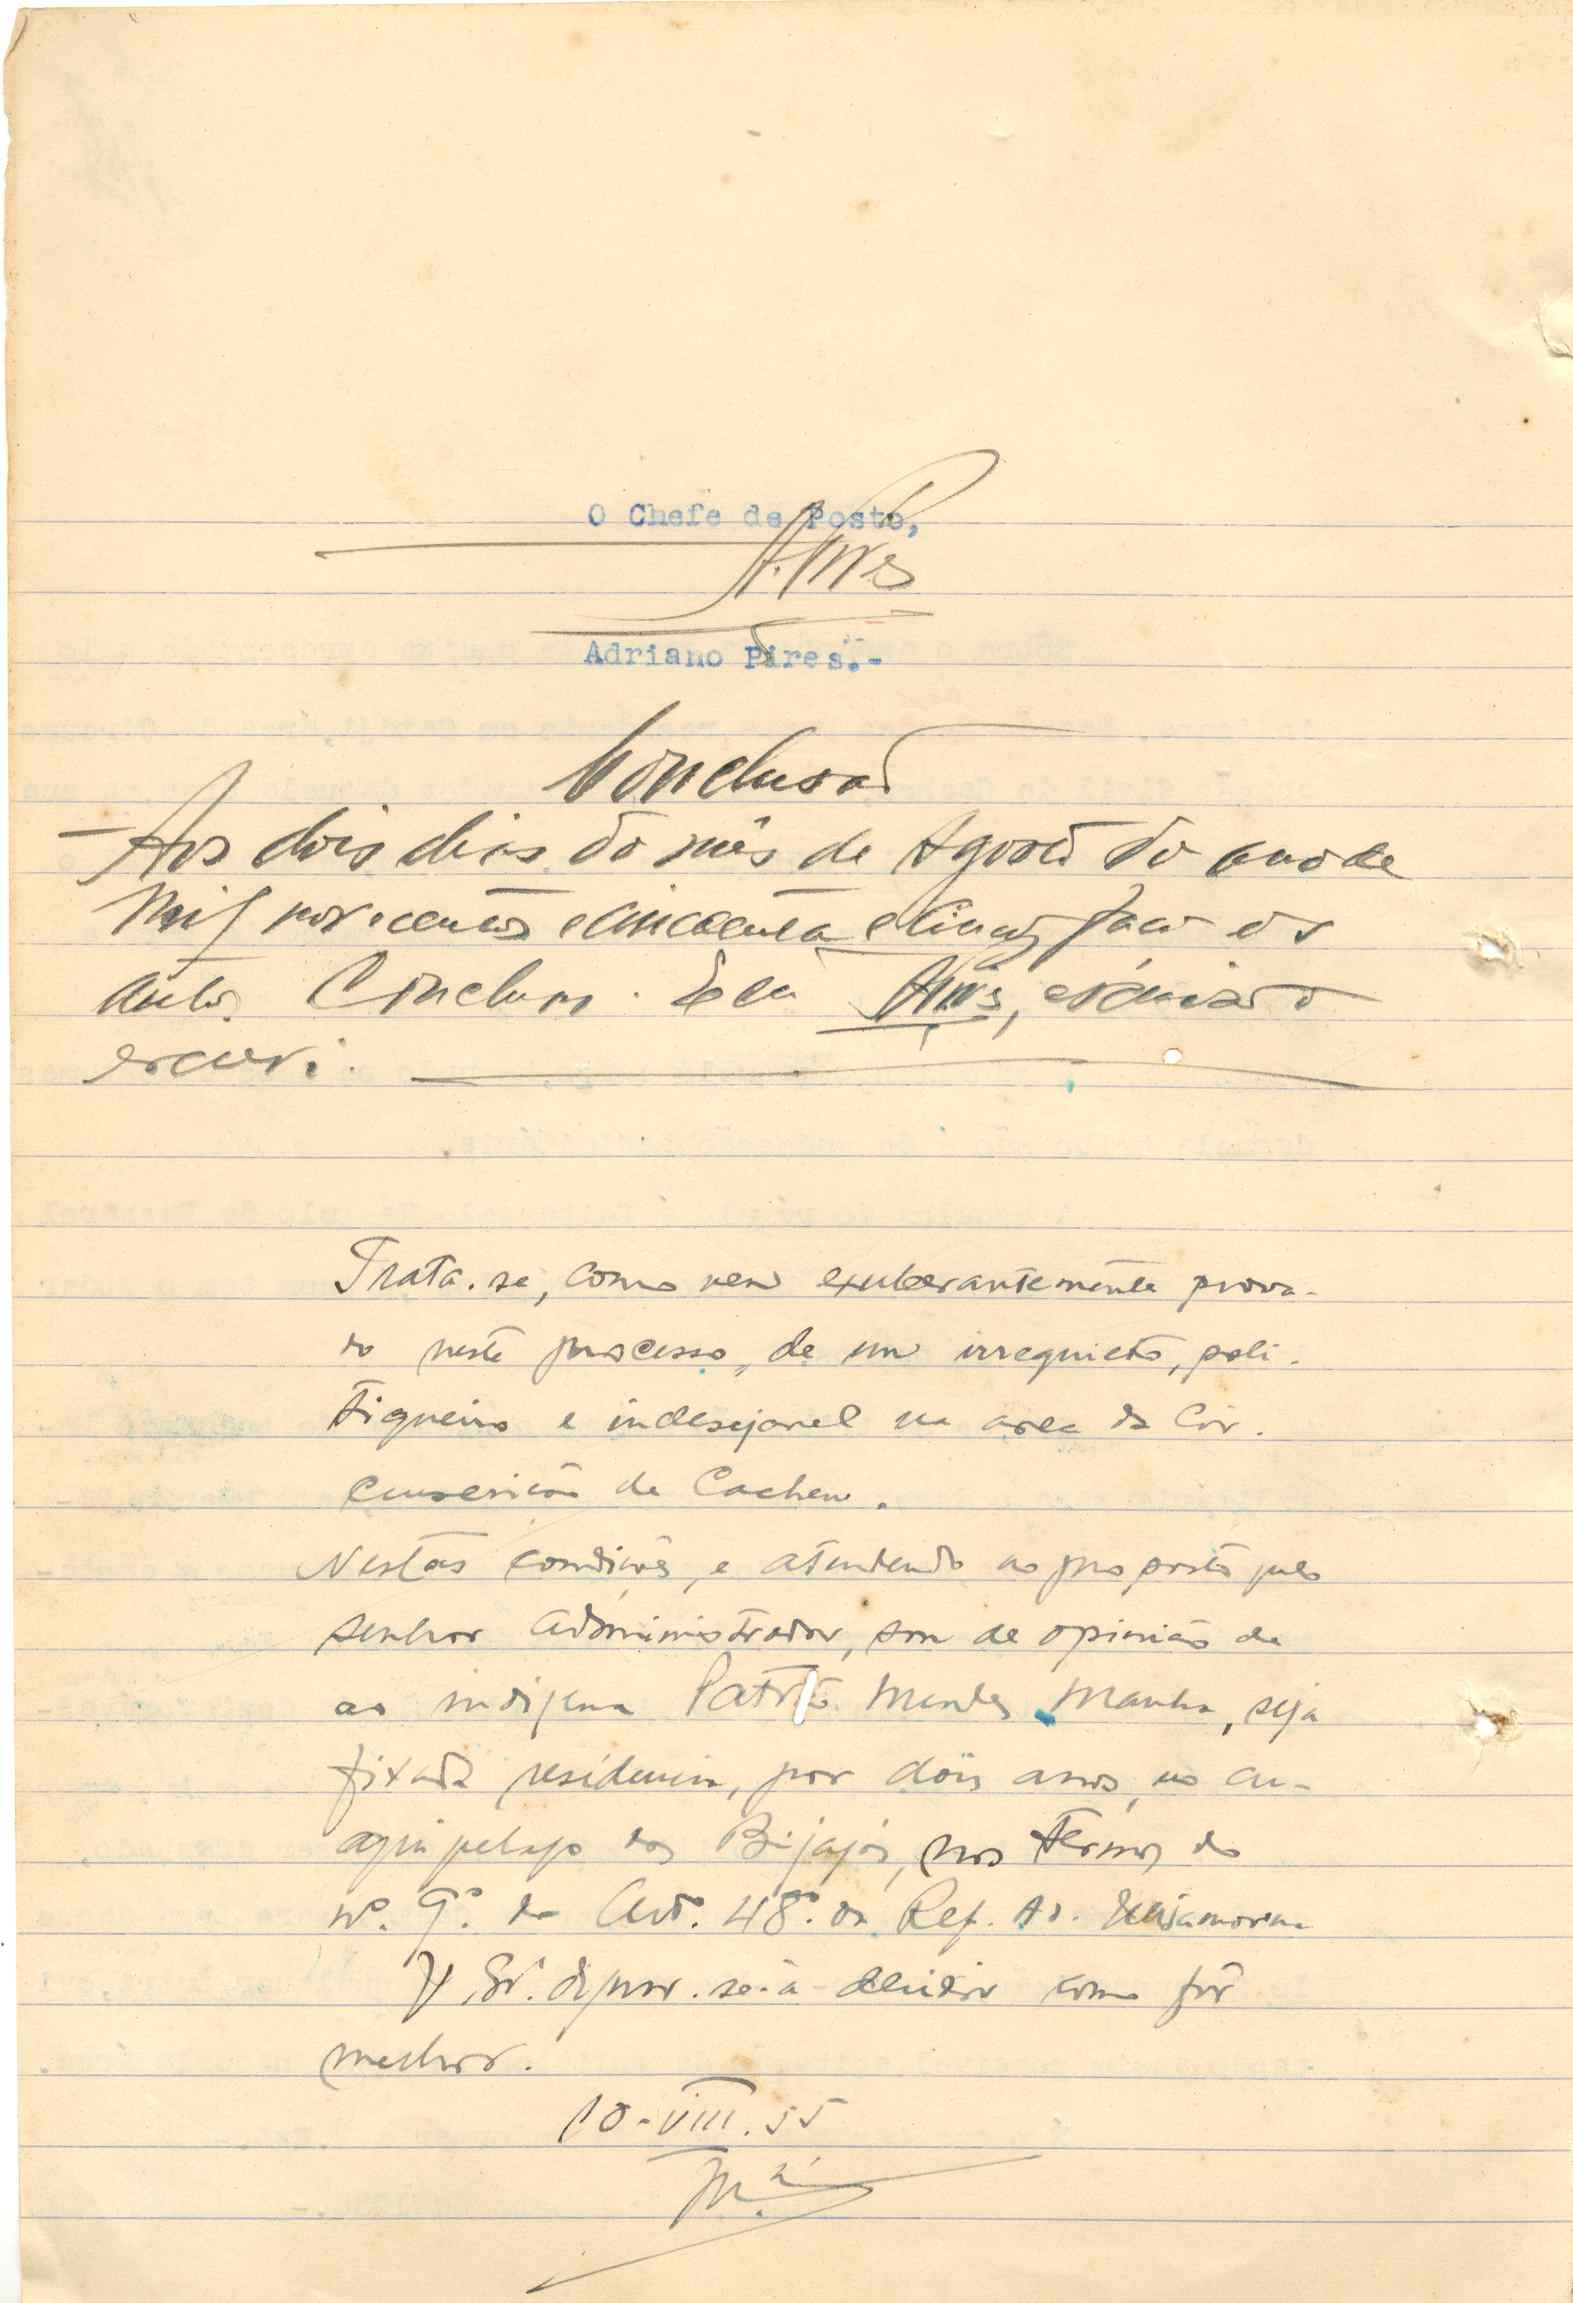 O Chefe de Posto,
A. Pires
Adriano Pires.-
Conclusão
Aos dois dias do mês de Agosto do ano de
mil novecentos e cincoenta e cinco faço os
autos conclusos. E eu Pires, escrivão o
escrevi.
Trata-se, como vem exuberantemente prova-
do neste processo, de um irrequieto, poli-
tiqueiro e indesejavel na area da Cir-
cunscrição de Cacheu.
Nestas condições, e atendendo ao proposto pelo
senhor Administrador, sou de opinião de
ao indigena Patrão Mendes Manha, seja
fixada residencia, por dois anos, no ar-
quipelago dos Bijagós, nos termos do
nº. 9º. do Artº. 48º. da Ref. Ad. Ultramarina
V. Exª. dignar-se-á decidir como fôr
melhor.
10-VIII.55